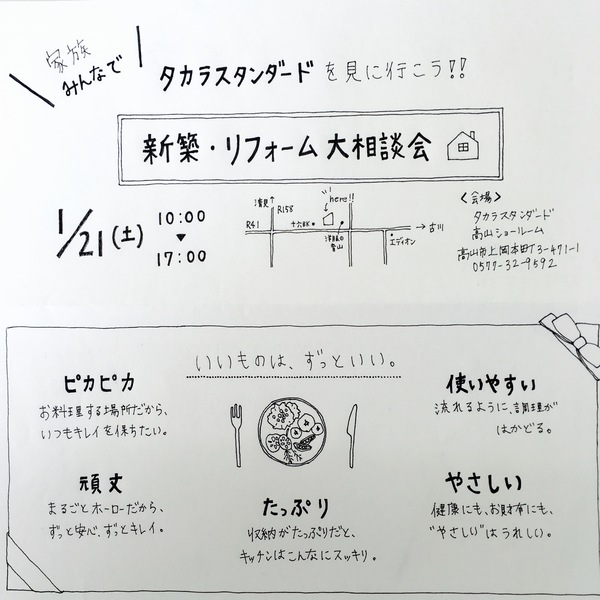 家族
みんなで
タカラスタンダードを見に行こう!!
新築・リフォーム大相談会
1/21(土)
10:00
▼
17:00
清見↑
R158
here!!
R41
十六BK
洋服の
青山
エディオン
→古川
<会場>
タカラスタンダード
高山ショールーム
高山市上岡本町3-471-1
0577-32-9592
いいものは、ずっといい。
ピカピカ
お料理する場所だから、
いつもキレイを保ちたい。
使いやすい
流れるように、調理が
はかどる。
頑丈
まるごとホーローだから、
ずっと安心、ずっとキレイ。
たっぷり
収納がたっぷりだと、
キッチンはこんなにスッキリ。
やさしい
健康にも、お財布にも、
"やさしい"はうれしい。